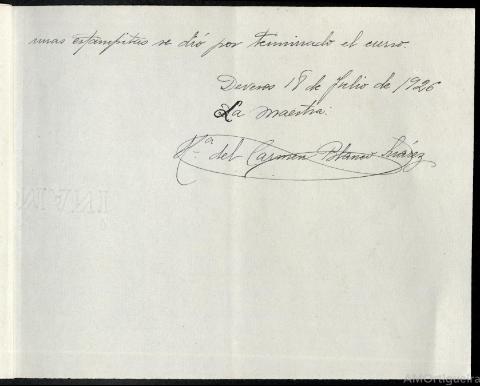 unas estampitas se dió por terminado el curso.
Deveso 18 de Julio de 1926
La maestra.
Mª del Carmen Blanco Suárez
AMOrtigueira